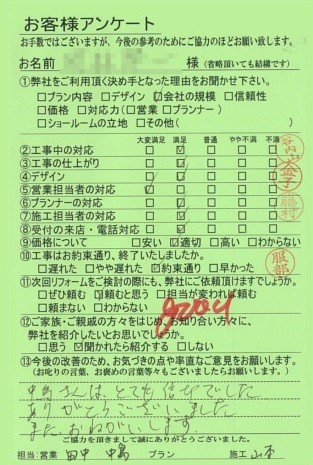 お客様アンケート
お手数ではございますが、今後の参考のためにご協力のほどお願い致します。
お名前 様（省略頂いても結構です）
①弊社をご利用頂く決め手となった理由をお聞かせ下さい。
□プラン内容 □デザイン ☑会社の規模 □信頼性
□価格 □対応力（□営業 □プランナー）
□ショールームの立地 □その他（ ）
大変満足 満足 普通 やや不満 不満
②工事中の対応 □ ☑ □ □ □
③工事の仕上がり □ ☑ □ □ □
④デザイン ☑ □ □ □ □
⑤営業担当者の対応 ☑ □ □ □ □
⑥プランナーの対応 □ ☑ □ □ □
⑦施工担当者の対応 □ ☑ □ □ □
⑧受付の来店・電話対応 □ ☑ □ □ □
⑨価格について □安い ☑適切 □高い □わからない
⑩工事はお約束通り、終了いたしましたか。
□遅れた □やや遅れた ☑約束通り □早かった
⑪次回リフォームをご検討の際にも、弊社にご依頼頂けますでしょうか。
□ぜひ頼む ☑頼むと思う □担当が変われば頼む
□頼まない □わからない
⑫ご家族・ご親戚の方々をはじめ、お知り合い方々に、
弊社を紹介したいと思いでしょうか。
□思う ☑聞かれたら紹介する □しない
⑬今後の改善のため、お気づきの点や率直なご意見をお願いします。
（お叱りの言葉、お褒めの言葉等々もございましたらお願いします。）
中島さんは、とても信頼でした
ありがとうございました
また、おねがいします。
ご協力を頂きまして誠にありがとうございました。
担当：営業 田中 中島 プラン 施工 山本
金子
藤村
服部